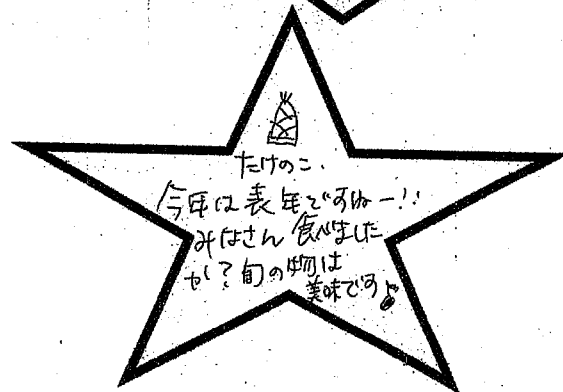 たけのこ、
今年は表年ですねー!!
みなさん 食べました
か？旬の物は
美味です♪